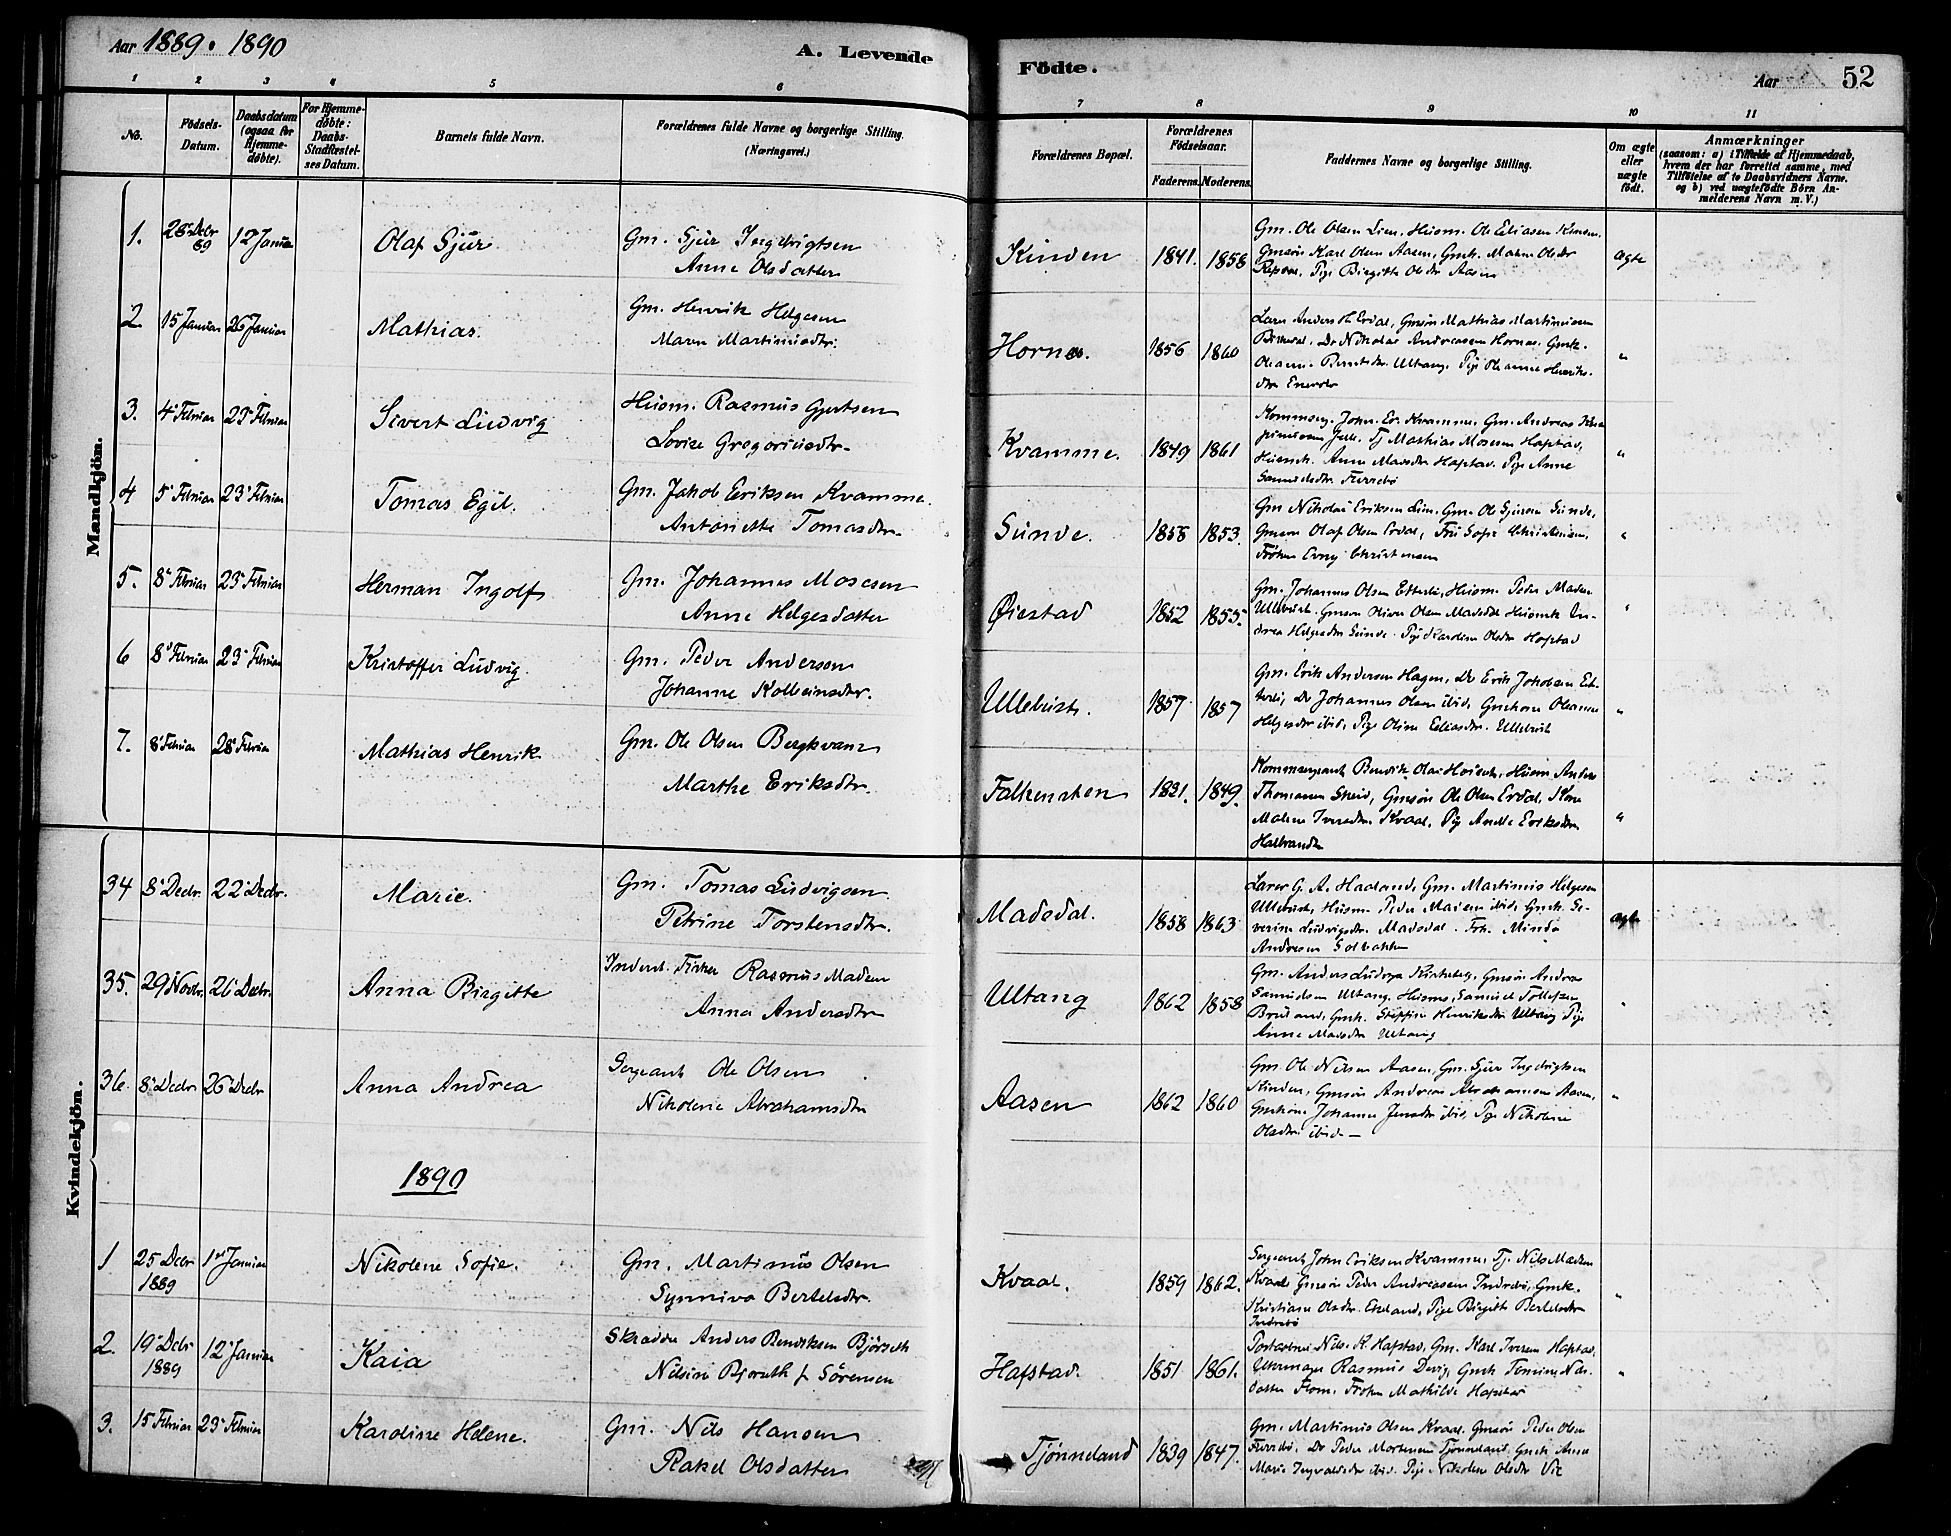 Aar 1889. 1890
A. Levende
Födte.
Aar
52
1 2 3 4 5 6 7 8 9 10 11
No.
Födsels-Datum.
Daabsdatum (ogsaa for Hjemme-döbte).
For Hjemme-döbte: Daabs-Stadfæstel-ses Datum.
Barnets fulde Navn.
Forældrenes fulde Navne og borgerlige Stilling.
(Næringsvei.)
Forældrenes Bopæl.
Forældrenes Födselsaar.
Faderens. Moderens.
Faddernes Navne og borgerlige Stilling.
Om ægte eller uægte födt.
Anmærkninger
(saasom: a) i Tilfælde af Hjemmedaab,
hvem der har forrettet samme, med
Tilföielse af to Daabsvidners Navne.
og b) ved uægtefödte Börn An-
melderens Navn m. V.)
Mandkjön.
1. 28 Debr 89 12 Januar Olaf Sjur Gm. Sjur Ingebrigtsen
Anne Olsdatter
Kinden 1841. 1858 Gm. Ole Olsen Lien, Husm. Ole Eliasen
Gmsön Karl Olsen Aasen, Gmk. Malene Olsdtr
Pige Birgitte Olsdtr Aasen
ægte
2. 15 Januar 26 Januar Mathias. Gm. Henrik Helgesen
Maren Martinusdtr.
Hornes. 1856 1860 Lærer Anders H. Erdal, Gmsön Mathias Martinusen
Do Nikolai Andreasen Hornes, Gmk.
Oleane Berntsdtr. Ultang, Pige Oleanne Henriks-
dtr
"
3. 4 Februar 23 Februar Sivert Ludvig Husm. Rasmus Gjertsen
Lovise Gregoriusdtr.
Kvamme. 1849 1861 Kommserg. John Er. Kvamme, Gm. Andreas
Tj Mathias Mosesen Hafstad,
Anne Madsdtr Hafstad. Pige Anne
Samuelsdtr. Furebö
"
4 5 Februar 23 Februar Tomas Egil. Gm. Jakob Eriksen Kvamme.
Antonette Tomasdtr.
Sunde. 1858 1853. Gm Nikolai Eriksen Lien, Gm. Ole Sjursen Sunde,
Gmsön Olaf Olsen Erdal, Fru Sofie Christensen,
Fröken Christensen
"
5. 8 Februar 23 Februar Herman Ingolf Gm. Johannes Mosesen
Anne Helgesdatter
Øiestad 1852 1855. Gm. Johannes Olsen Husm. Peder Madsen
Ullebust. Gmsön Oliver Olsen Madsdal Husmk An-
drea Helgesdtr Sunde. Pige Karoline Olsdtr Hafstad
"
6 8 Februar 23 Februar Kristoffer Ludvig. Gm. Peder Andersen
Johanne Kolbeinsdtr.
Ullebust. 1857 1857 Gm. Erik Andersen Hagen, Do Erik Jakobsen
Do Johannes Olsen ibid, Gmkone Oleanne
Helgesdtr ibid, Pige Oline Eliasdtr. Ullebust
"
7. 8 Februar 28 Februar Mathias Henrik Gm. Ole Olsen Bergkvam
Marthe Eriksdtr.
Falkensten 1831. 1849. Kommsergeant Bendik Husm. Anders
Thomasen Skeid, Gmsön Ole Olsen Erdal, Kone
Malene Iversdtr. Kvaal, Pige Anette Eriksdtr
Halbrandtr
"
Kvindekjön.
34 8 Decbr. 22 Decbr. Marie. Gm. Tomas Ludvigsen
Petrine Torstensdtr.
Madsdal. 1858 1863 Lærer G. A. Haaland, Gm. Martinus Helgesen
Ullebust, Husm Peder Madsen ibid, Gmk. Se-
verine Ludvigsdtr. Madsdal. Frk. Minda
Andresen Solbakken
ægte
35. 29 Novbr. 26 Decbr. Anna Birgitte Inderst. Fisker Rasmus Madsen
Anna Andersdtr
Ultang 1862 1858 Gm. Anders Ludvigs Kirkebö, Gmsön Andreas
Samuelsen Ultang, Husm. Samuel Tollefsen
Bruland, Gmk. Henriksdtr Ultang Pige
Anne Madsdtr Ultang
"
36. 8 Decbr 26 Decbr Anna Andrea Sergeant Ole Olsen
Nikoline Abrahamsdtr
Aasen 1862 1860 Gm Ole Nilsen Aasen, Gm. Sjur Ingebrigtsen
Kinden, Gmsön Andreas Abrahamsen Aasen,
Gmkone Johanne Jensdtr ibid, Pige Nikoline
Olsdtr ibid —
"
1890
1 25 Decbr 1889 1 Januar Nikolene Sofie. Gm. Martinus Olsen
Synniva Bertelsdtr.
Kvaal. 1859 1862. Sergeant John Eriksen Kvamme, Tj. Nils Madsen
Kvaal Gmsön Peder Andreasen Indrebö, Gmk.
Kristiane Olsdtr. Pige Birgitte Bertelsdtr
Indrebö
"
2. 19 Debr 1889 12 Januar Kaia Skrædder Anders Bendiksen Björseth
Nilsine Bjorseth f Sörensen
Hafstad. 1851 1861. Nils K. Hafstad, Gm. Karl Iversen Hafstad,
Uhrmager Rasmus Devig, Gmk Tomine Nils-
datter Flom, Frøken Mathilde Hafstad
"
3. 15 Februar 23 Februar Karoline Helene. Gm. Nils Hansen
Rakel Olsdatter
Tjönneland 1839 1847. Gm. Martinus Olsen Kvaal. Gmsön Peder Olsen
Furebö, Do Peder Mortensen Tjönneland, Gmk Anne
Marie Ingvaldsdtr ibid. Pige Nikoline Olsdtr Vie